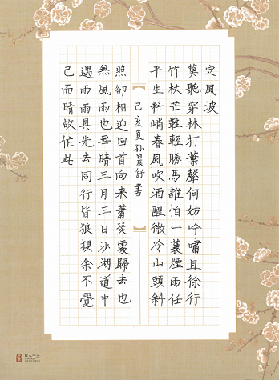 定風波
莫聽穿林打葉聲何妨吟嘯且徐行
竹杖芒鞋輕勝馬誰怕一蓑煙雨任
平生料峭春風吹酒醒微冷山頭斜
己亥夏孙
照卻相迎回首向來蕭瑟處歸去也
然風雨也無晴三月三日沙湖道中
遇雨雨具先去同行皆狼狽余不覺
已而晴故作此